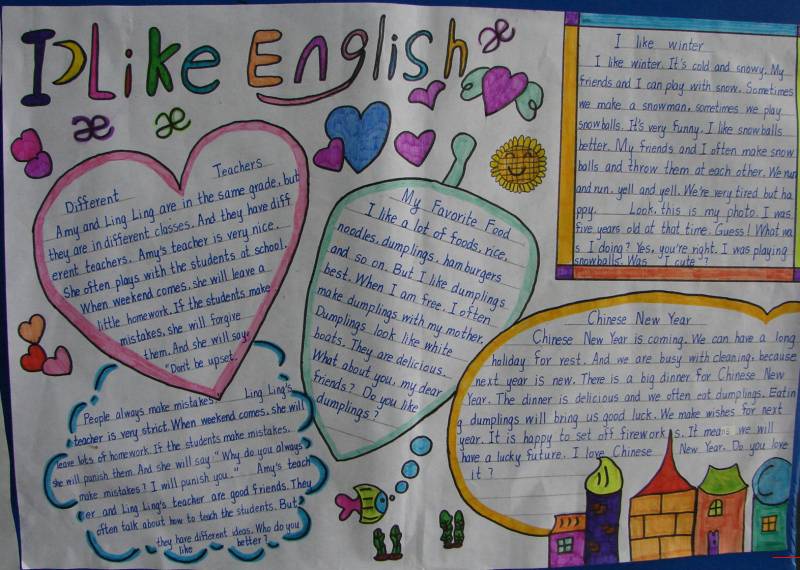 I Like English
æ
æ
æ
Different Teachers
Amy and Ling Ling are in the same grade, but
they are in different classes. And they have diff
erent teachers. Amy's teacher is very nice.
She often plays with the students at school.
When weekend comes, she will leave a
little homework. If the students make
mistakes, she will forgive
them. And she will say,
"Don't be upset.
People always make mistakes." Ling Ling's
teacher is very strict. When weekend comes, she will
leave lots of homework. If the students make mistakes,
she will punish them. And she will say "Why do you always
make mistakes? I will punish you." Amy's teach
er and Ling Ling's teacher are good friends. They
often talk about how to teach the students. But
they have different ideas. Who do you
like better?
My Favorite Food
I like a lot of foods, rice,
noodles, dumplings, hamburgers
and so on. But I like dumplings
best. When I am free, I often
make dumplings with my mother.
Dumplings look like white
boats. They are delicious.
What about you, my dear
friends? Do you like
dumplings?
I like winter
I like winter. It's cold and snowy. My
friends and I can play with snow. Sometimes
we make a snowman, sometimes we play
snowballs. It's very funny. I like snowballs
better. My friends and I often make snow
balls and throw them at each other. We run
and run, yell and yell. We're very tired but ha
ppy. Look, this is my photo. I was
five years old at that time. Guess! What wa
s I doing? Yes, you're right. I was playing
snowballs. Was I cute?
Chinese New Year
Chinese New Year is coming. We can have a long
holiday for rest. And we are busy with cleaning, because
next year is new. There is a big dinner for Chinese New
Year. The dinner is delicious and we often eat dumplings. Eatin
g dumplings will bring us good luck. We make wishes for next
year. It is happy to set off fireworks. It means we will
have a lucky future. I love Chinese New Year. Do you love
it?